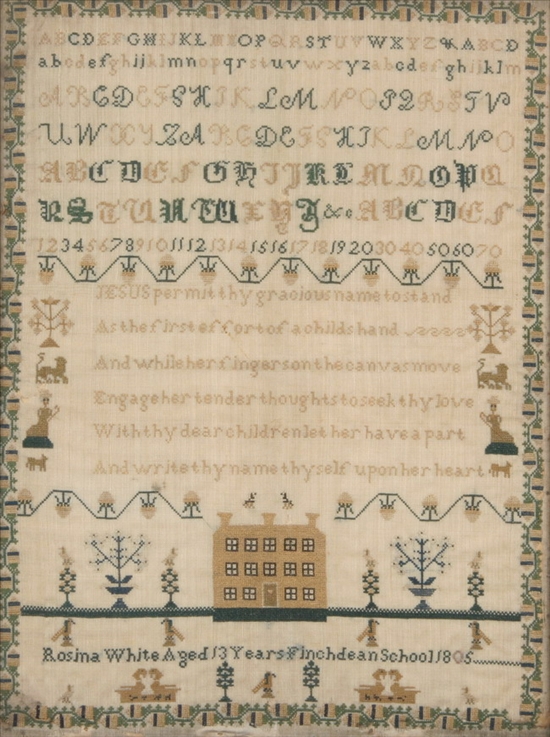 ABCDEFGHIJKLMNOPQRSTUVWXYZ&ABCD
abcdefghijklmnopqrstuvwxyzabcdefghijklm
ABCDEFGHIKLMNOPQRSTV
UWXYZABCDEFGHIKLMNO
ABCDEFGHIJKLMNOPQ
RSTUVWXYZ&cABCDEF
1234567891011121314151617181920304050607​0
JESUS permit thy gracious name to stand
As the first effort of a childs hand
And while her fingers on the canvas move
Engage her tender thoughts to seek thy love
With thy dear children let her have a part
And write thy name thyself upon her heart
Rosina White Aged 13 Years Finchdean School 1805